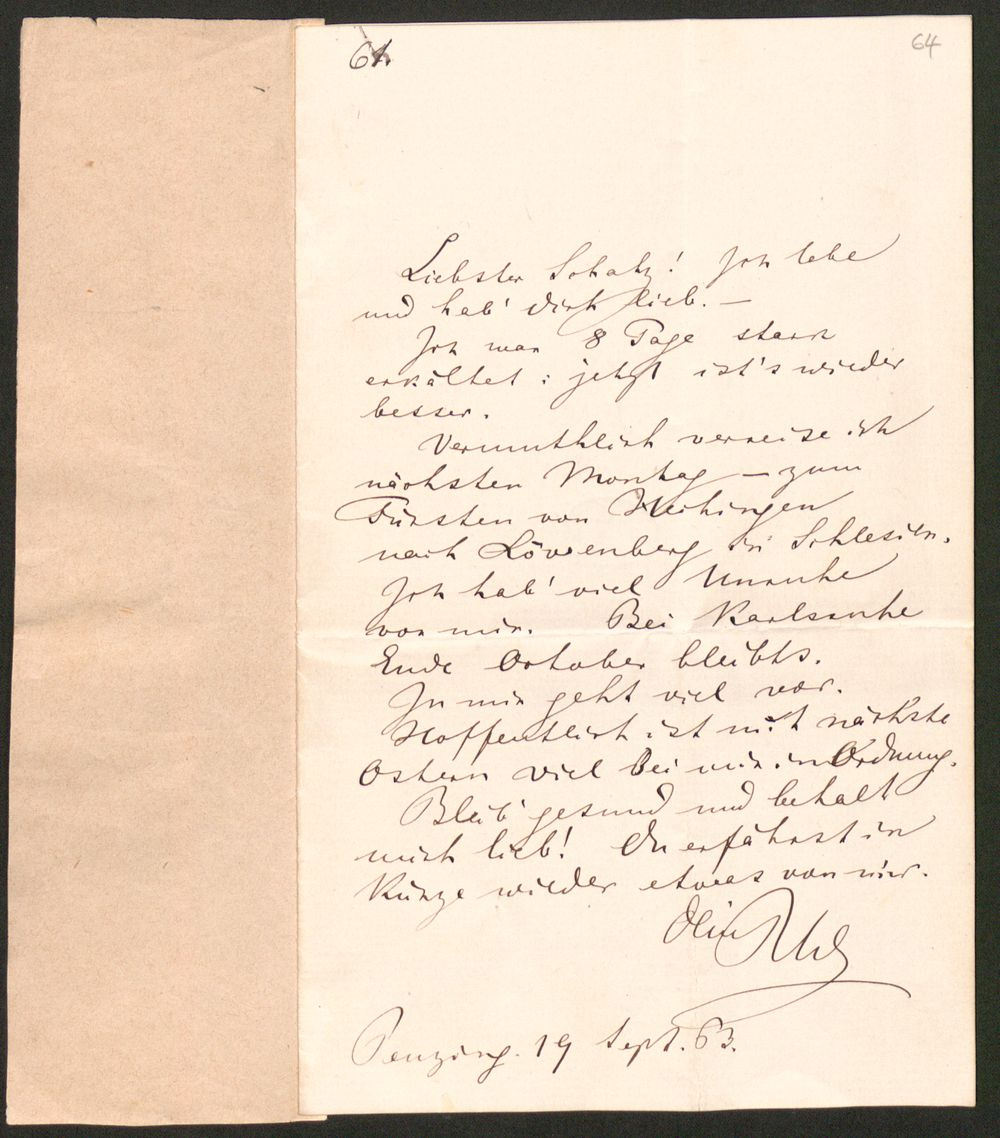 61.
64
Liebster Schatz! Ich lebe
und hab' dich lieb. —
Ich war 8 Tage stark
erkältet: jetzt ist's wieder
besser.
Vermuthlich verreise ich
nächsten Montag — zum
Fürsten von Hechingen
nach Löwenberg in Schlesien.
Ich hab' viel Unruhe
vor mir. Bei Karlsruhe
Ende October bleibts.
In mir geht viel vor.
Hoffentlich ist mit nächste
Ostern viel bei mir in Ordnung.
Bleib' gesund und behalt
mich lieb! Du erfährst in
Kürze wieder etwas von mir.
Dein
Penzing. 19 Sept. 63.